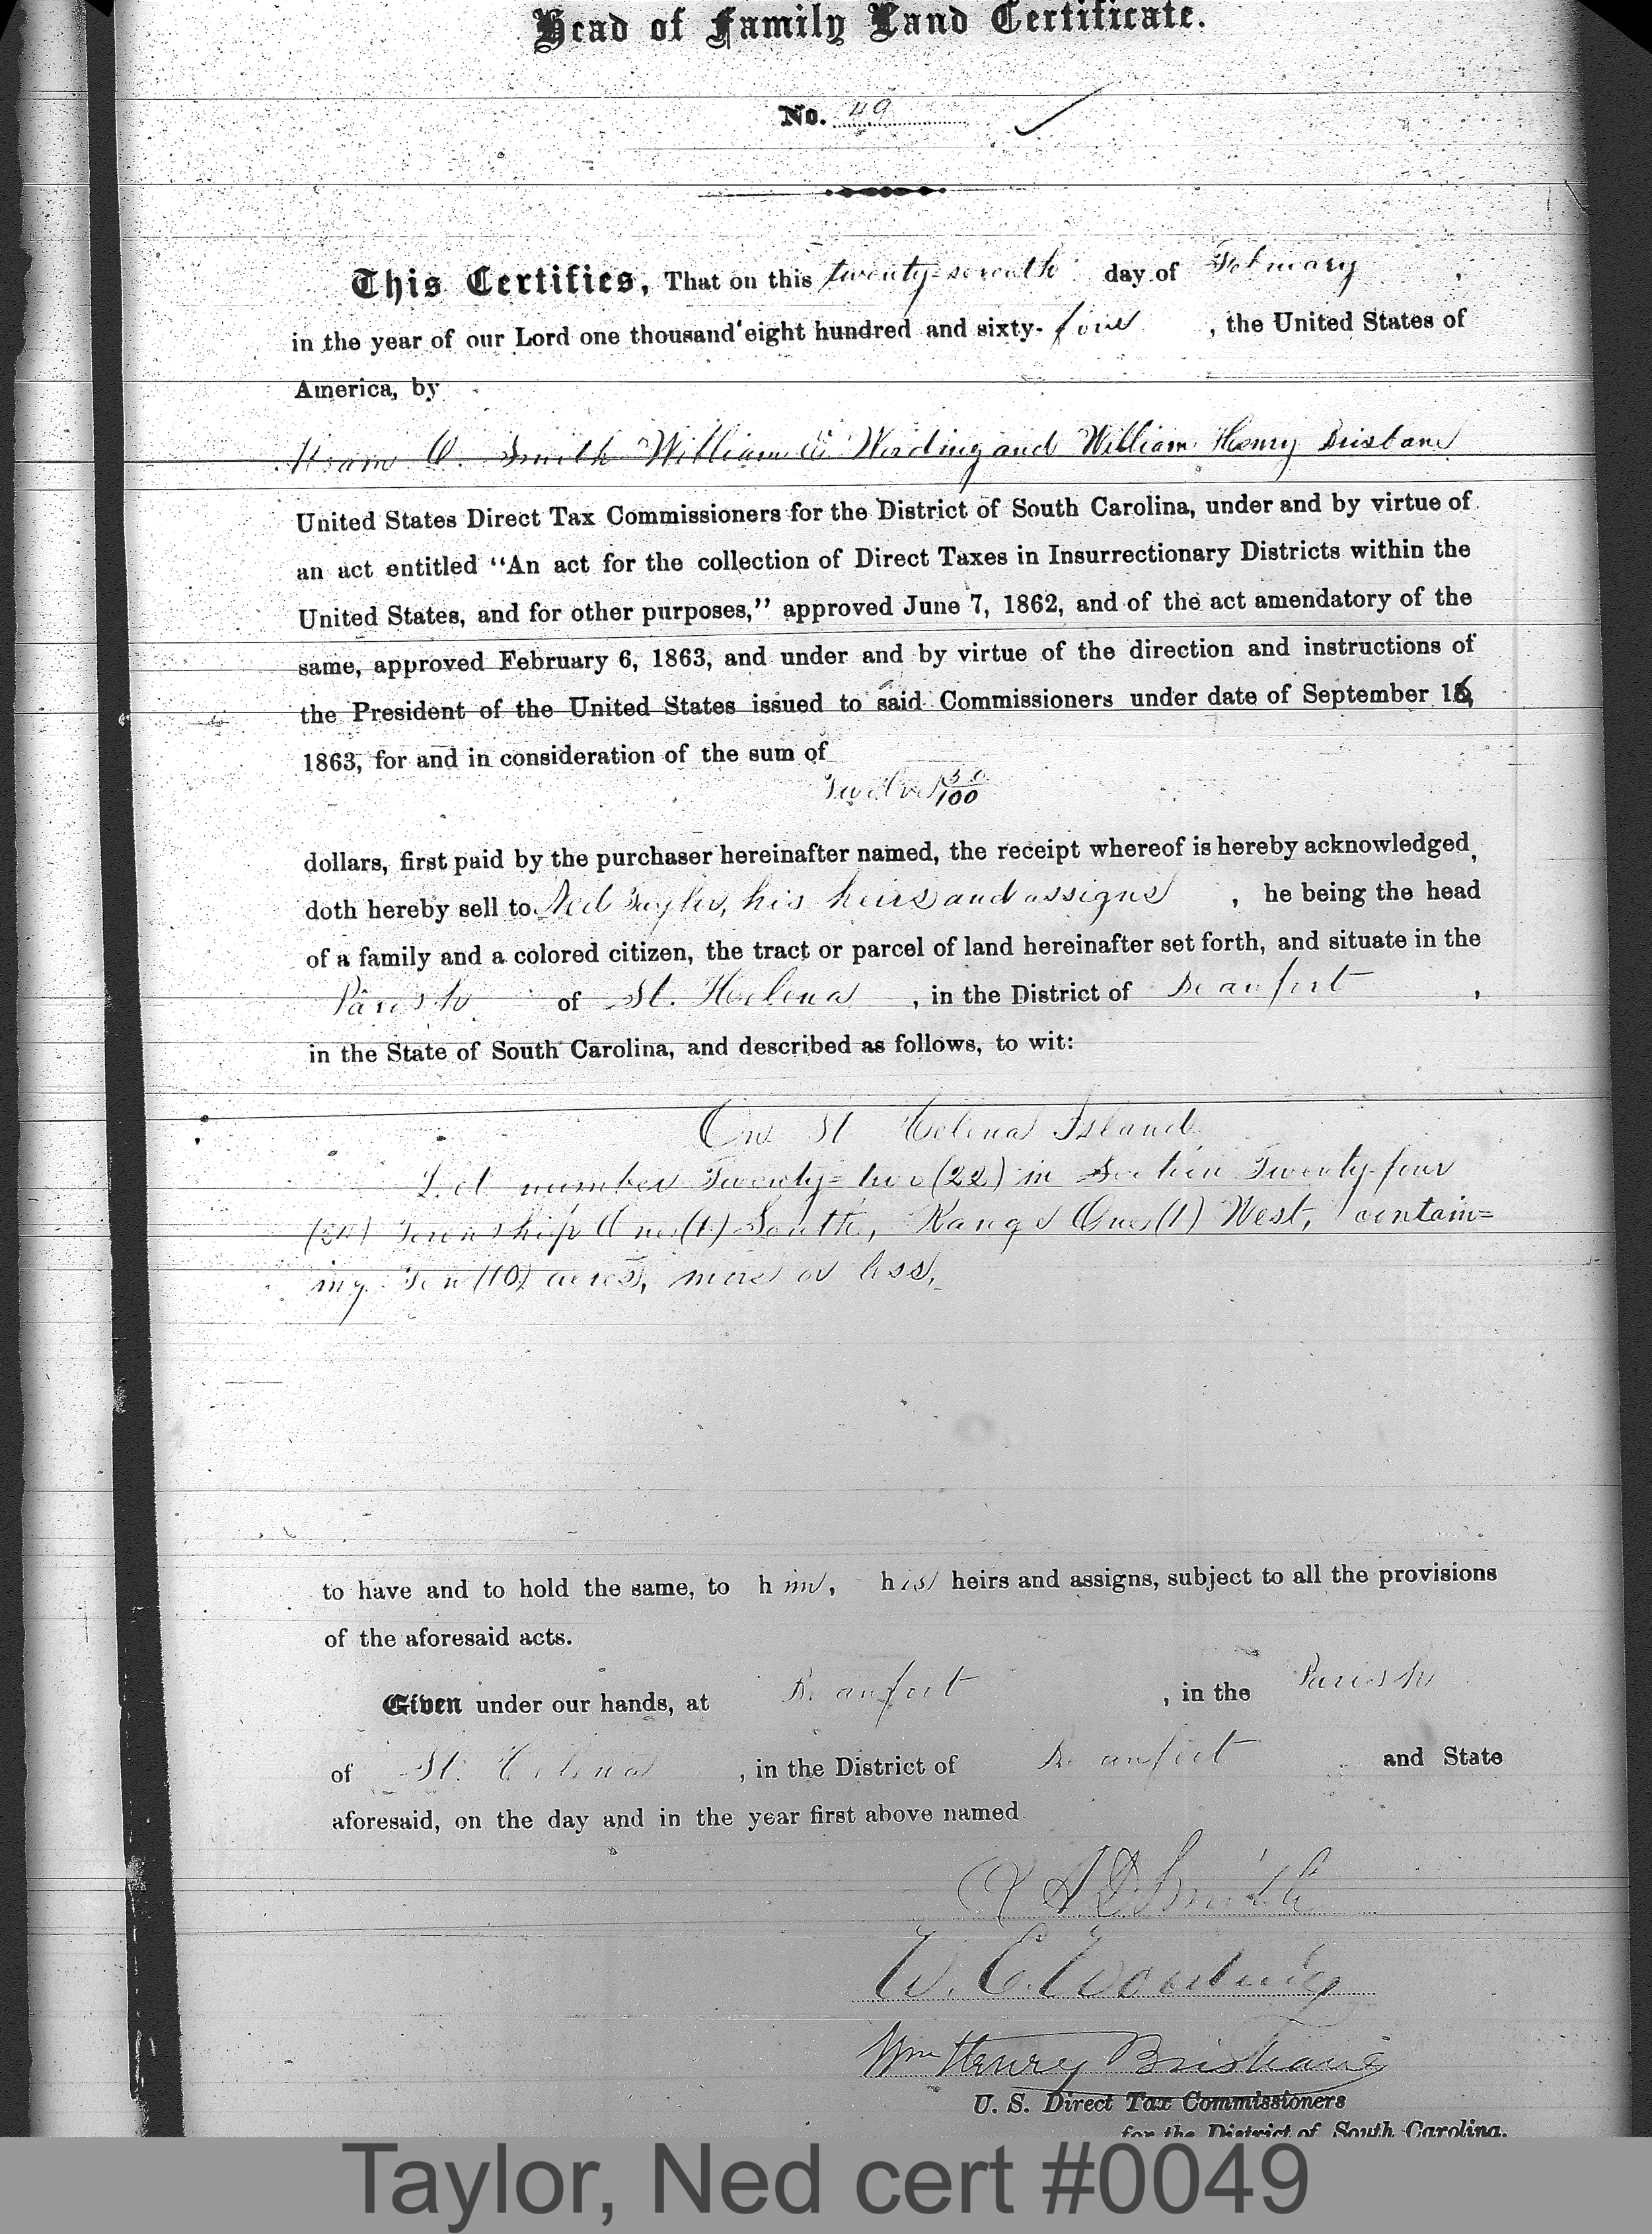 Head of Family Land Certificate.
No. 49
This Certifies, That on this twenty-seventh day of February,
in the year of our Lord one thousand eight hundred and sixty-four, the United States of
America, by
Smith William E. Wording and William Henry Brisbane
United States Direct Tax Commissioners for the District of South Carolina, under and by virtue of
an act entitled "An act for the collection of Direct Taxes in Insurrectionary Districts within the
United States, and for other purposes," approved June 7, 1862, and of the act amendatory of the
same, approved February 6, 1863, and under and by virtue of the direction and instructions of
the President of the United States issued to said Commissioners under date of September 16,
1863, for and in consideration of the sum of
Twelve 50/100
dollars, first paid by the purchaser hereinafter named, the receipt whereof is hereby acknowledged,
doth hereby sell to Ned Taylor, his heirs and assigns, he being the head
of a family and a colored citizen, the tract or parcel of land hereinafter set forth, and situate in the
Parish of St. Helena, in the District of Beaufort,
in the State of South Carolina, and described as follows, to wit:
On St Helena Island
Lot number Twenty=two (22) in Section Twenty-four
(24) Township One (1) South, Range One (1) West, contain=
ing Ten (10) acres, more or less.
to have and to hold the same, to him, his heirs and assigns, subject to all the provisions
of the aforesaid acts.
Given under our hands, at Beaufort, in the Parish
of St. Helena, in the District of Beaufort and State
aforesaid, on the day and in the year first above named.
A D Smith
W. E. Wording
Wm Henry Brisbane
U. S. Direct Tax Commissioners
for the District of South Carolina.
Taylor, Ned cert #0049